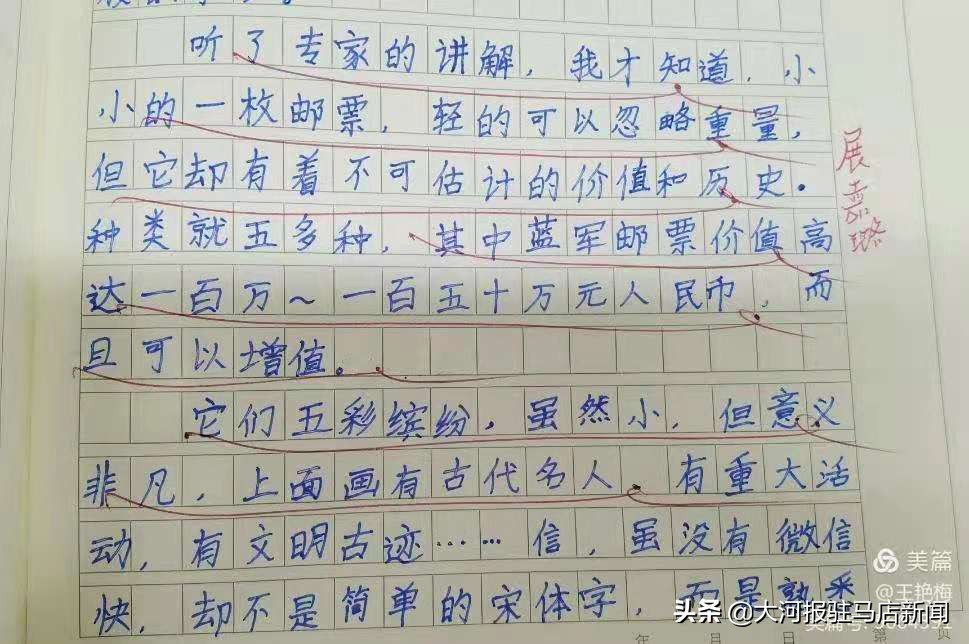 听了专家的讲解，我才知道，小
小的一枚邮票，轻的可以忽略重量，
但它却有着不可估计的价值和历史。
种类就五多种，其中蓝军邮票价值高
达一百万~一百五十万元人民币，而
且可以增值。
它们五彩缤纷，虽然小，但意义
非凡，上面画有古代名人，有重大活
动，有文明古迹……信，虽没有微信
快，却不是简单的宋体字，而是熟悉
展
璐
美篇
@王艳梅
头条 @大河报驻马店新闻
年 月 日 页